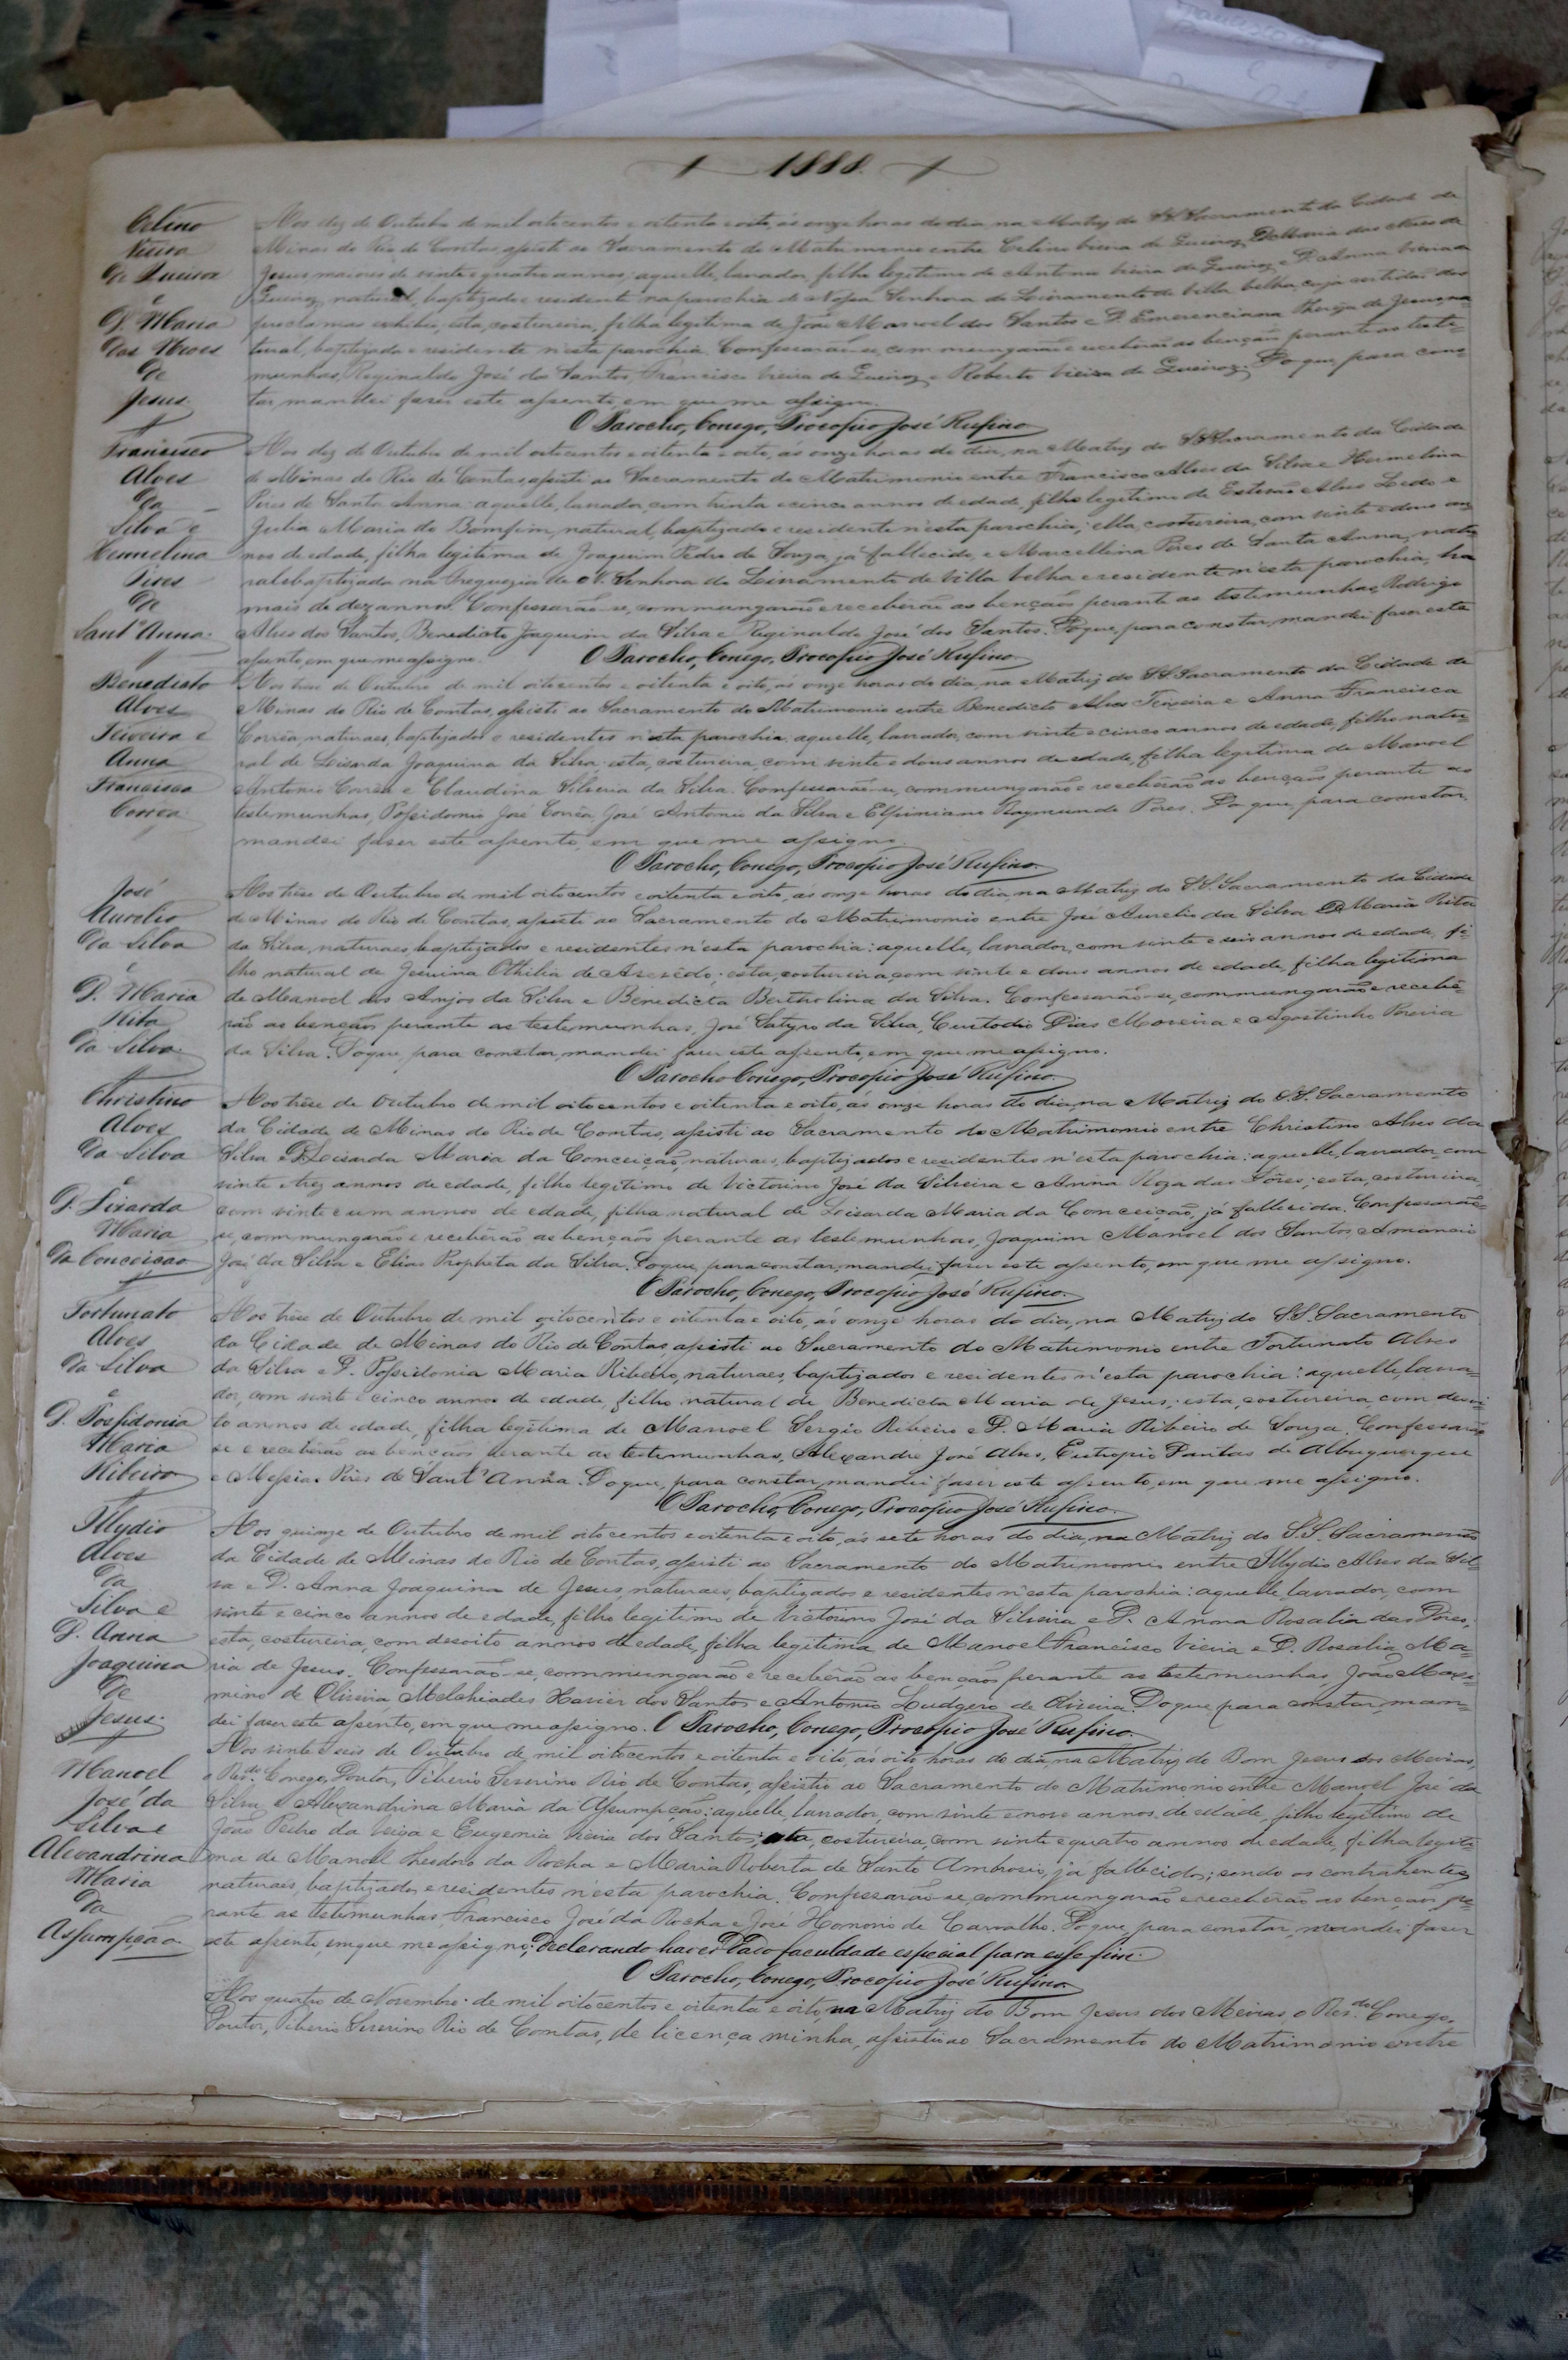 1888.
Celino
Vieira
de Queiroz
e
D. Maria
das Neves
de
Jesus.
Aos dez de Outubro de mil oitocentos e oitenta e oito, ás onze horas do dia, na Matriz do S.S. Sacramento da Cidade de
Minas do Rio de Contas, assisti ao Sacramento do Matrimonio entre Celino Vieira de Queiroz e D. Maria das Neves de
Jesus, maiores de vinte e quatro annos; aquelle, lavrador, filho legitimo de Antonio Vieira de Queiroz e D. Anna Vieira de
Queiroz, natural, baptizado e residente na parochia de Nossa Senhora do Livramento de Villa Velha, cuja certidão dos
proclamas exhibiu; esta, costureira, filha legitima de João Manoel dos Santos e D. Emerenciana Thereza de Jesus, na-
tural, baptizada e residente n'esta parochia. Confessarão-se, commungarão e receberão as bençãos perante as teste-
munhas, Reginaldo José dos Santos, Francisco Vieira de Queiroz e Roberto Vieira de Queiroz. Do que, para cons-
tar, mandei faser este assento, em que me assigno.
O Parocho, Conego, Procopio José Rufino
Francisco
Alves
da
Silva e
Hermelina
Pires
de
Sant'Anna.
Aos dez de Outubro de mil oitocentos e oitenta e oito, ás onze horas do dia, na Matriz do S.S. Sacramento da Cidade
de Minas do Rio de Contas, assisti ao Sacramento do Matrimonio entre Francisco Alves da Silva e Hermelina
Pires de Santa Anna: aquelle, lavrador, com trinta e cinco annos de edade, filho legitimo de Estevão Alves Ledo e
Julia Maria do Bomfim, natural, baptizado e residente n'esta parochia; ella, costureira, com vinte e dous an-
nos de edade, filha legitima de Joaquim Pedro de Souza, já fallecido, e Marcellina Pires de Santa Anna, natu-
ral e baptizada na Freguezia de N. Senhora do Livramento de Villa Velha e residente n'esta parochia, ha
mais de dez annos. Confessarão-se, commungarão e receberão as bençãos perante as testemunhas, Rodrigo
Alves dos Santos, Benedicto Joaquim da Silva e Reginaldo José dos Santos. Do que, para constar, mandei faser este
assento, em que me assigno. O Parocho, Conego, Procopio José Rufino
Benedicto
Alves
Teixeira e
Anna
Francisca
Corrêa.
Aos treze de Outubro de mil oitocentos e oitenta e oito, ás onze horas do dia, na Matriz do S.S. Sacramento da Cidade de
Minas do Rio de Contas, assisti ao Sacramento do Matrimonio entre Benedicto Alves Teixeira e Anna Francisca
Corrêa, naturaes, baptizados e residentes n'esta parochia: aquelle, lavrador, com vinte e cinco annos de edade, filho natu-
ral de Lisarda Joaquina da Silva; esta, costureira, com vinte e dous annos de edade, filha legitima de Manoel
Antonio Corrêa e Claudina Silveria da Silva. Confessarão-se, commungarão e receberão as bençãos perante as
testemunhas, Possidonio José Corrêa, José Antonio da Silva e Elpiniano Raymundo Pires. Do que, para constar,
mandei faser este assento, em que me assigno.
O Parocho, Conego, Procopio José Rufino.
José
Aurelio
da Silva
e
D. Maria
Rita
da Silva.
Aos treze de Outubro de mil oitocentos e oitenta e oito, ás onze horas do dia, na Matriz do S.S. Sacramento da Cidade
de Minas do Rio de Contas, assisti ao Sacramento do Matrimonio entre José Aurelio da Silva e D. Maria Rita
da Silva, naturaes, baptizados e residentes n'esta parochia: aquelle, lavrador, com vinte e seis annos de edade, fi-
lho natural de Jesuina Othilia de Azevêdo; esta, costureira, com vinte e dous annos de edade, filha legitima
de Manoel dos Anjos da Silva e Benedicta Bertholina da Silva. Confessarão-se, commungarão e recebe-
rão as bençãos perante as testemunhas, José Satyro da Silva, Custodio Dias Moreira e Agostinho Pereira
da Silva. Do que, para constar, mandei faser este assento, em que me assigno.
O Parocho Conego, Procopio José Rufino.
Christino
Alves
da Silva
e
D. Lisarda
Maria
da Conceição
Aos treze de Outubro de mil oitocentos e oitenta e oito, ás onze horas do dia, na Matriz do S.S. Sacramento
da Cidade de Minas do Rio de Contas, assisti ao Sacramento do Matrimonio entre Christino Alves da
Silva e D. Lisarda Maria da Conceição, naturaes, baptizados e residentes n'esta parochia: aquelle, lavrador, com
vinte e trez annos de edade, filho legitimo de Victorino José da Silveira e Anna Roza das Dôres; esta, costureira,
com vinte e um annos de edade, filha natural de Lisarda Maria da Conceição, já fallecida. Confessarão-
se, commungarão e receberão as bençãos perante as testemunhas, Joaquim Manoel dos Santos, Amancio
José da Silva e Elias Propheta da Silva. Do que, para constar, mandei faser este assento, em que me assigno.
O Parocho, Conego, Procopio José Rufino.
Fortunato
Alves
da Silva
e
D. Possidonia
Maria
Ribeiro
Aos treze de Outubro de mil oitocentos e oitenta e oito, ás onze horas do dia, na Matriz do S.S. Sacramento
da Cidade de Minas do Rio de Contas, assisti ao Sacramento do Matrimonio entre Fortunato Alves
da Silva e D. Possidonia Maria Ribeiro, naturaes, baptizados e residentes n'esta parochia: aquelle, lavra-
dor, com vinte e cinco annos de edade, filho natural de Benedicta Maria de Jesus; esta, costureira, com desoi-
to annos de edade, filha legitima de Manoel Sergio Ribeiro e D. Maria Ribeiro de Souza. Confessarão-
se e receberão as bençãos perante as testemunhas, Alexandre José Alves, Eutropio Dantas de Albuquerque
e Messias Pires de Sant'Anna. Do que, para constar, mandei faser este assento, em que me assigno.
O Parocho, Conego, Procopio José Rufino.
Illydio
Alves
da
Silva e
D. Anna
Joaquina
de
Jesus.
Aos quinze de Outubro de mil oitocentos e oitenta e oito, ás sete horas do dia, na Matriz do S.S. Sacramento
da Cidade de Minas do Rio de Contas, assisti ao Sacramento do Matrimonio entre Illydio Alves da Sil-
va e D. Anna Joaquina de Jesus, naturaes, baptizados e residentes n'esta parochia: aquelle, lavrador, com
vinte e cinco annos de edade, filho legitimo de Victorino José da Silveira e D. Anna Rosalia das Dôres;
esta, costureira, com desoito annos de edade, filha legitima de Manoel Francisco Vieira e D. Rosalia Ma-
ria de Jesus. Confessarão-se, commungarão e receberão as bençãos perante as testemunhas, João Maxi-
mino de Oliveira, Melchiades Xavier dos Santos e Antonio Ludgero de Oliveira. Do que para constar, man-
dei faser este assento, em que me assigno. O Parocho, Conego, Procopio José Rufino.
Manoel
José da
Silva e
Alexandrina
Maria
da
Assumpção
Aos vinte e seis de Outubro de mil oitocentos e oitenta e oito, ás oito horas do dia, na Matriz do Bom Jesus dos Meiras,
o Revdo. Conego, Doutor, Tiberio Severino Rio de Contas, assistio ao Sacramento do Matrimonio entre Manoel José da
Silva e Alexandrina Maria da Assumpção: aquelle, lavrador, com vinte e nove annos de edade, filho legitimo de
João Pedro da Veiga e Eugenia Vieira dos Santos; esta, costureira, com vinte e quatro annos de edade, filha legiti-
ma de Manoel Theodoro da Rocha e Maria Roberta de Santo Ambrosio, já fallecidos; sendo os contrahentes
naturaes, baptizados e residentes n'esta parochia. Confessarão-se, commungarão e receberão as bençãos pe-
rante as testemunhas, Francisco José da Rocha e José Honorio de Carvalho. Do que, para constar, mandei faser
este assento, em que me assigno; Declarando haver Dado faculdade especial para esse fim.
O Parocho, Conego, Procopio José Rufino
Aos quatro de Novembro de mil oitocentos e oitenta e oito, na Matriz do Bom Jesus dos Meiras, o Revdo. Conego,
Doutor, Tiberio Severino Rio de Contas, de licença minha, assistio ao Sacramento do Matrimonio entre